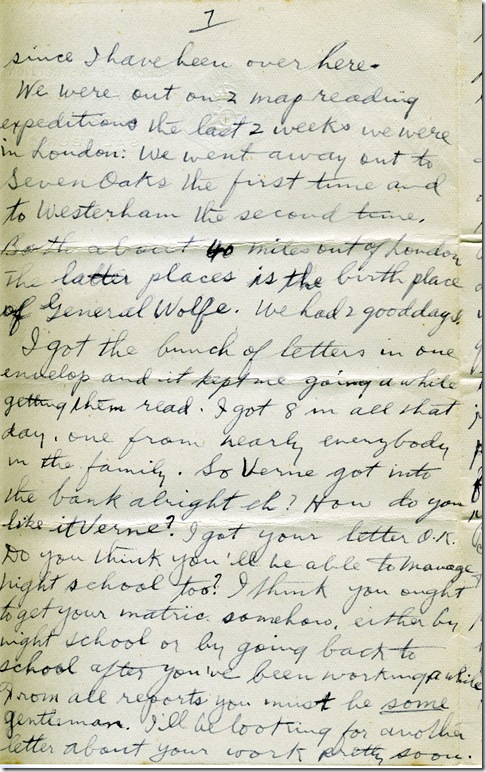 7
since I have been over here.
We were out on 2 map reading
expeditions the last 2 weeks we were
in London: We went away out to
Seven Oaks the first time and
to Westerham the second time.
Both about 40 miles out of London
the latter places is the birth place
of General Wolfe. We had 2 good days.
I got the bunch of letters in one
envelop and it kept me going a while
getting them read. I got 8 in all that
day. one from nearly everybody
in the family. So Verne got into
the bank alright eh? How do you
like it Verne? I got your letter O.K.
Do you think you'll be able to manage
night school too? I think you ought
to get your matric. somehow, either by
night school or by going back to
school after you've been working a while
From all reports you must be some
gentleman. I'll be looking for another
letter about your work pretty soon.